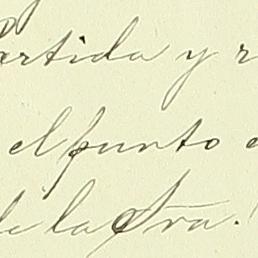 partida y r
el punto
de la Sra.